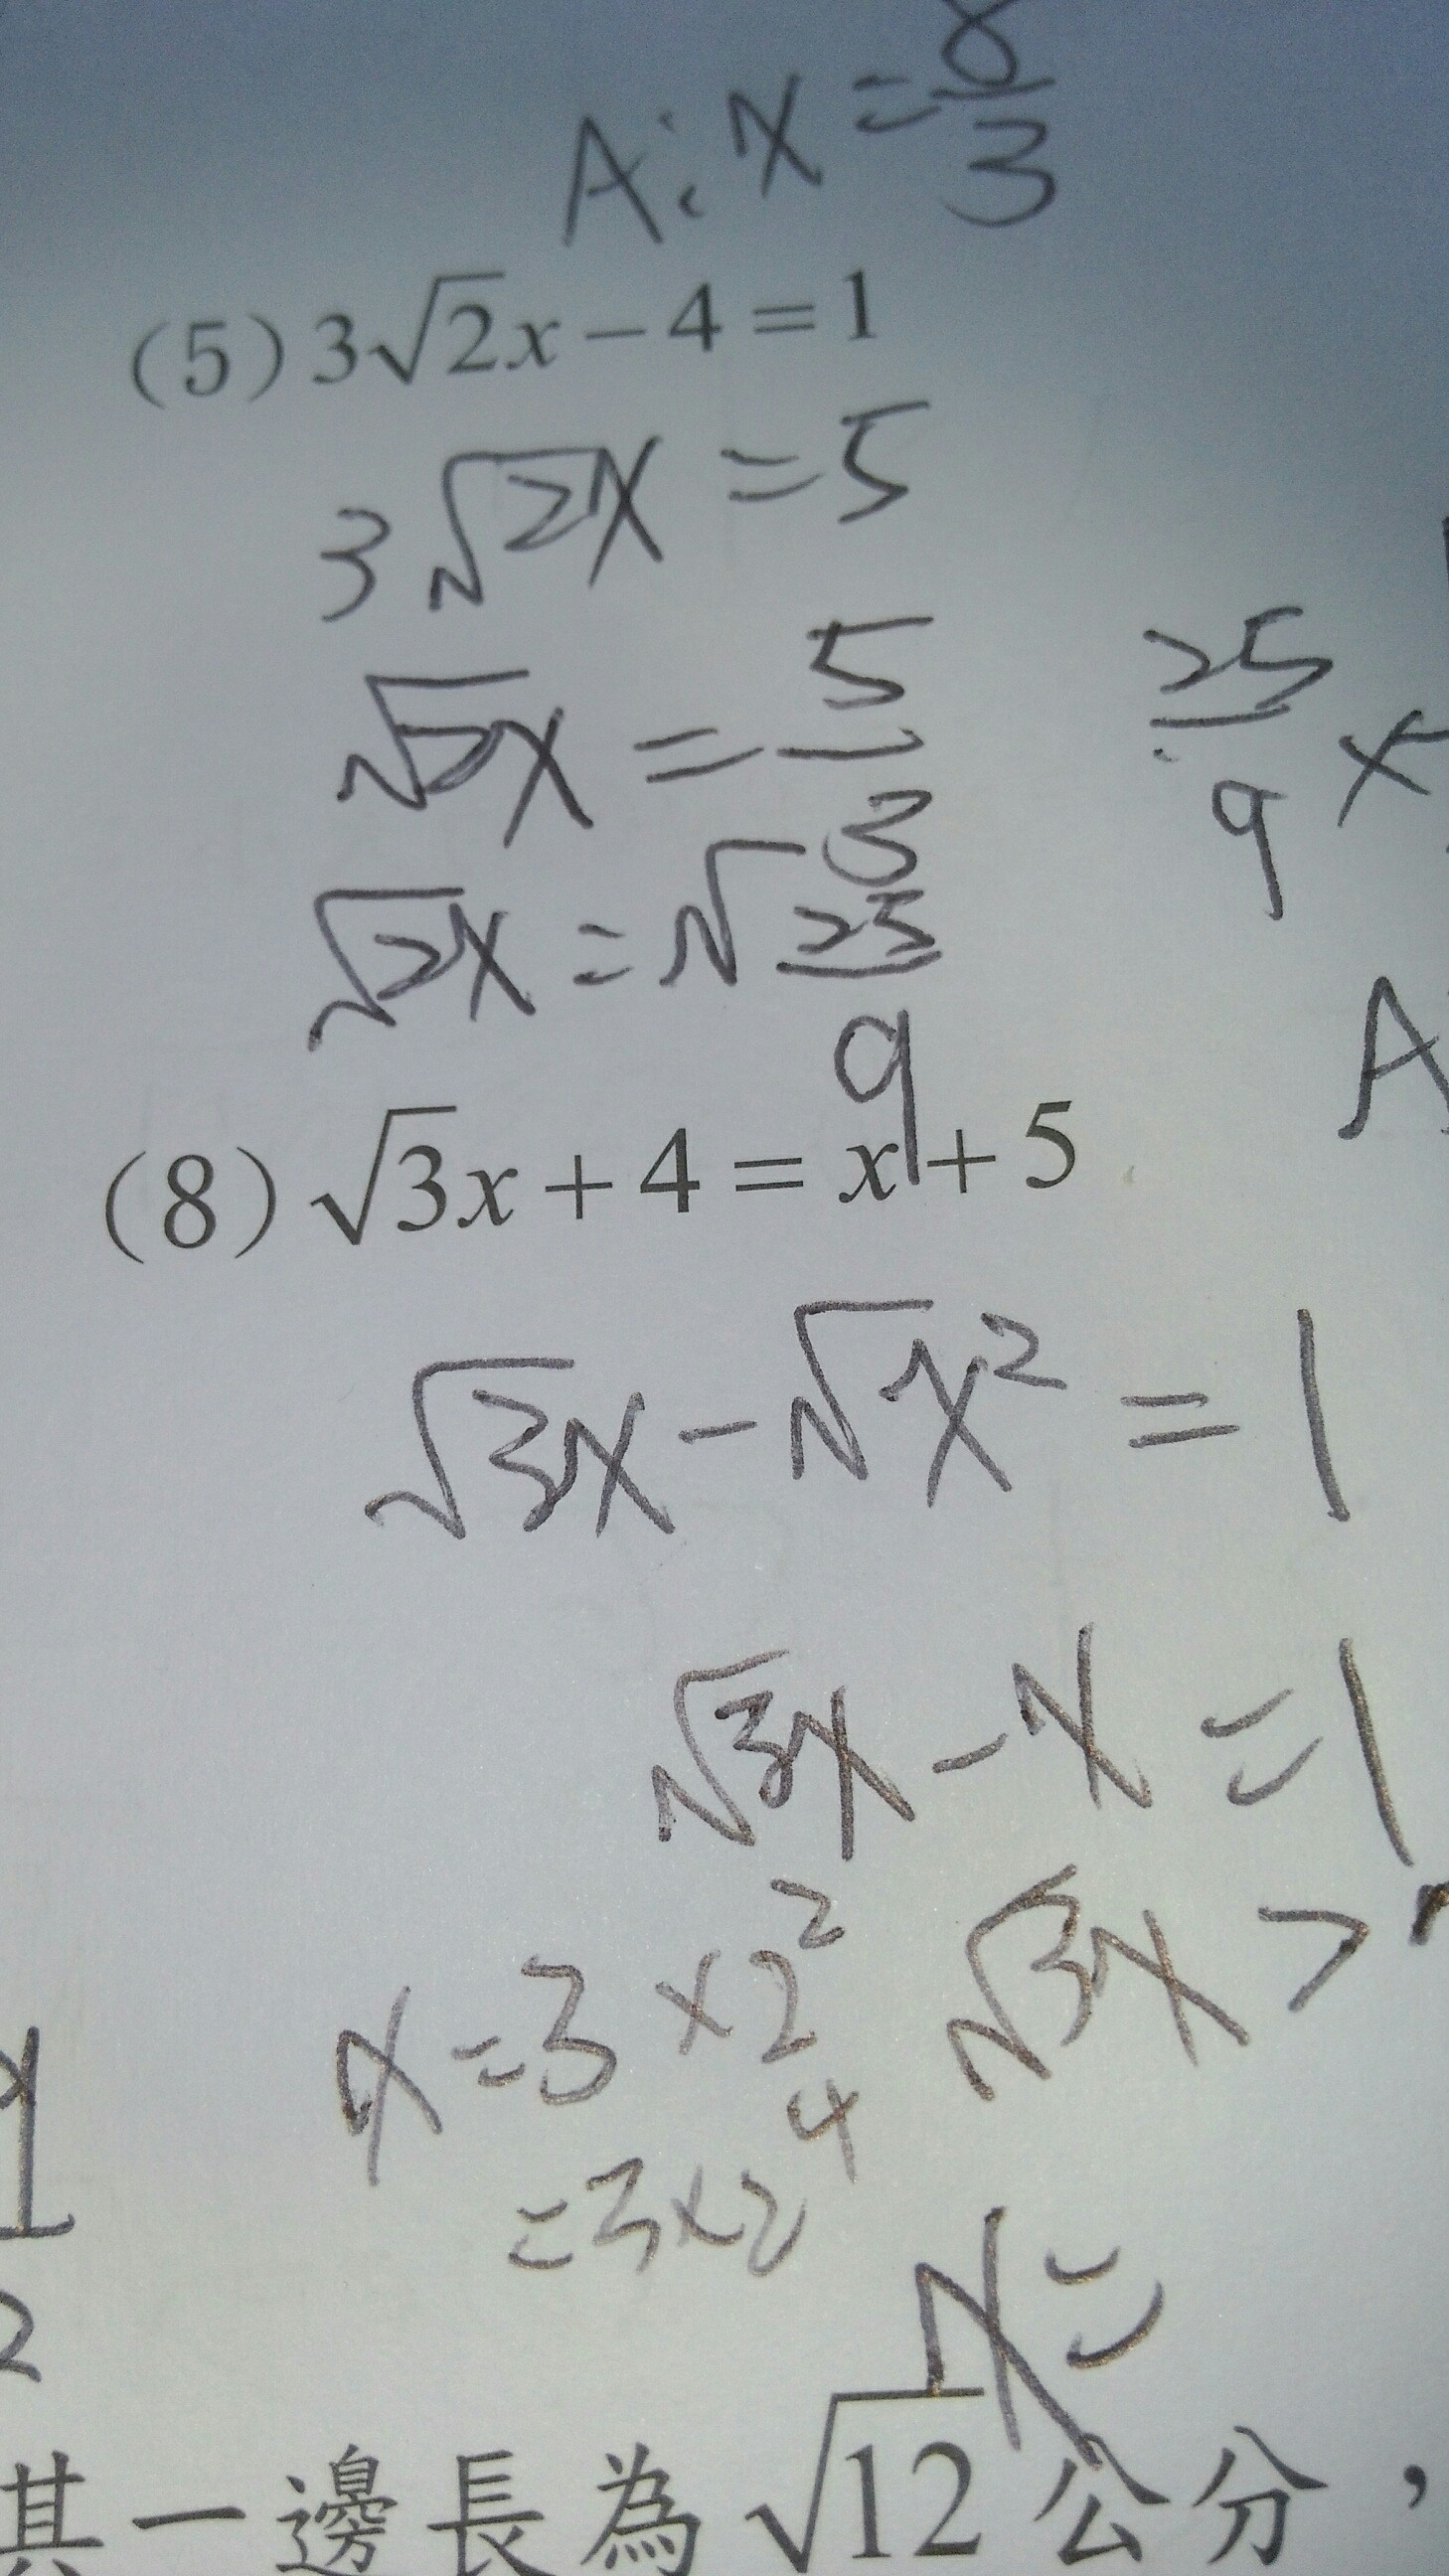 A: x = 8/3
(5) 3√2x − 4 = 1
3√2x = 5
√2x = 5/3
25/9 ×
√2x = √25/9
A
(8) √3x + 4 = x + 5
√3x − √x² = 1
√3x − x = 1
√3x >
x = 3 × 2²
= 3 × 2⁴
x =
2
其一邊長為√12公分，